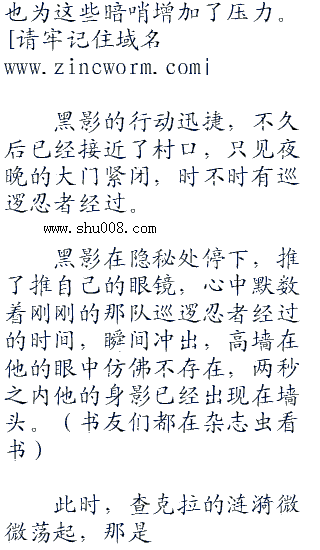 也为这些暗哨增加了压力。
[请牢记住域名
www.zincworm.com|
黑影的行动迅捷，不久
后已经接近了村口，只见夜
晚的大门紧闭，时不时有巡
逻忍者经过。
www.shu008.com
黑影在隐秘处停下，推
了推自己的眼镜，心中默数
着刚刚的那队巡逻忍者经过
的时间，瞬间冲出，高墙在
他的眼中仿佛不存在，两秒
之内他的身影已经出现在墙
头。（书友们都在杂志虫看
书）
此时，查克拉的涟漪微
微荡起，那是